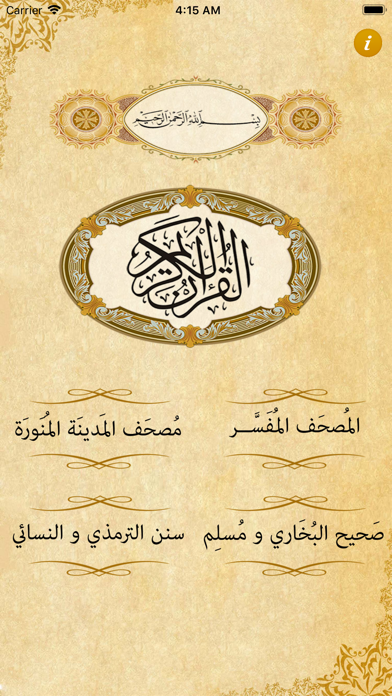 Carrier 4:15 AM
i
بِسْمِ اللَّهِ الرَّحْمَٰنِ الرَّحِيمِ
القرآن الكريم
المُصحَف المُفَسَّــر
مُصحَف المَدينَة المُنَورَة
صَحيح البُخَاري و مُسلِم
سنن الترمذي و النسائي